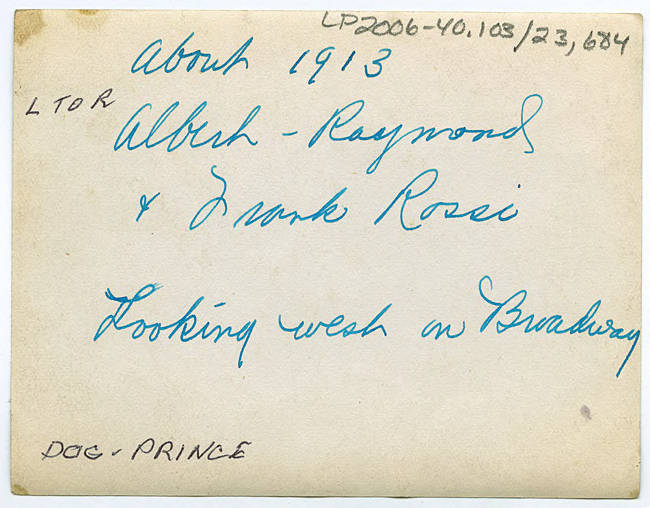 LP2006-40.103/23,684
About 1913
L TO R
Albert - Raymond
& Frank Rossi
Looking west on Broadway
DOG - PRINCE